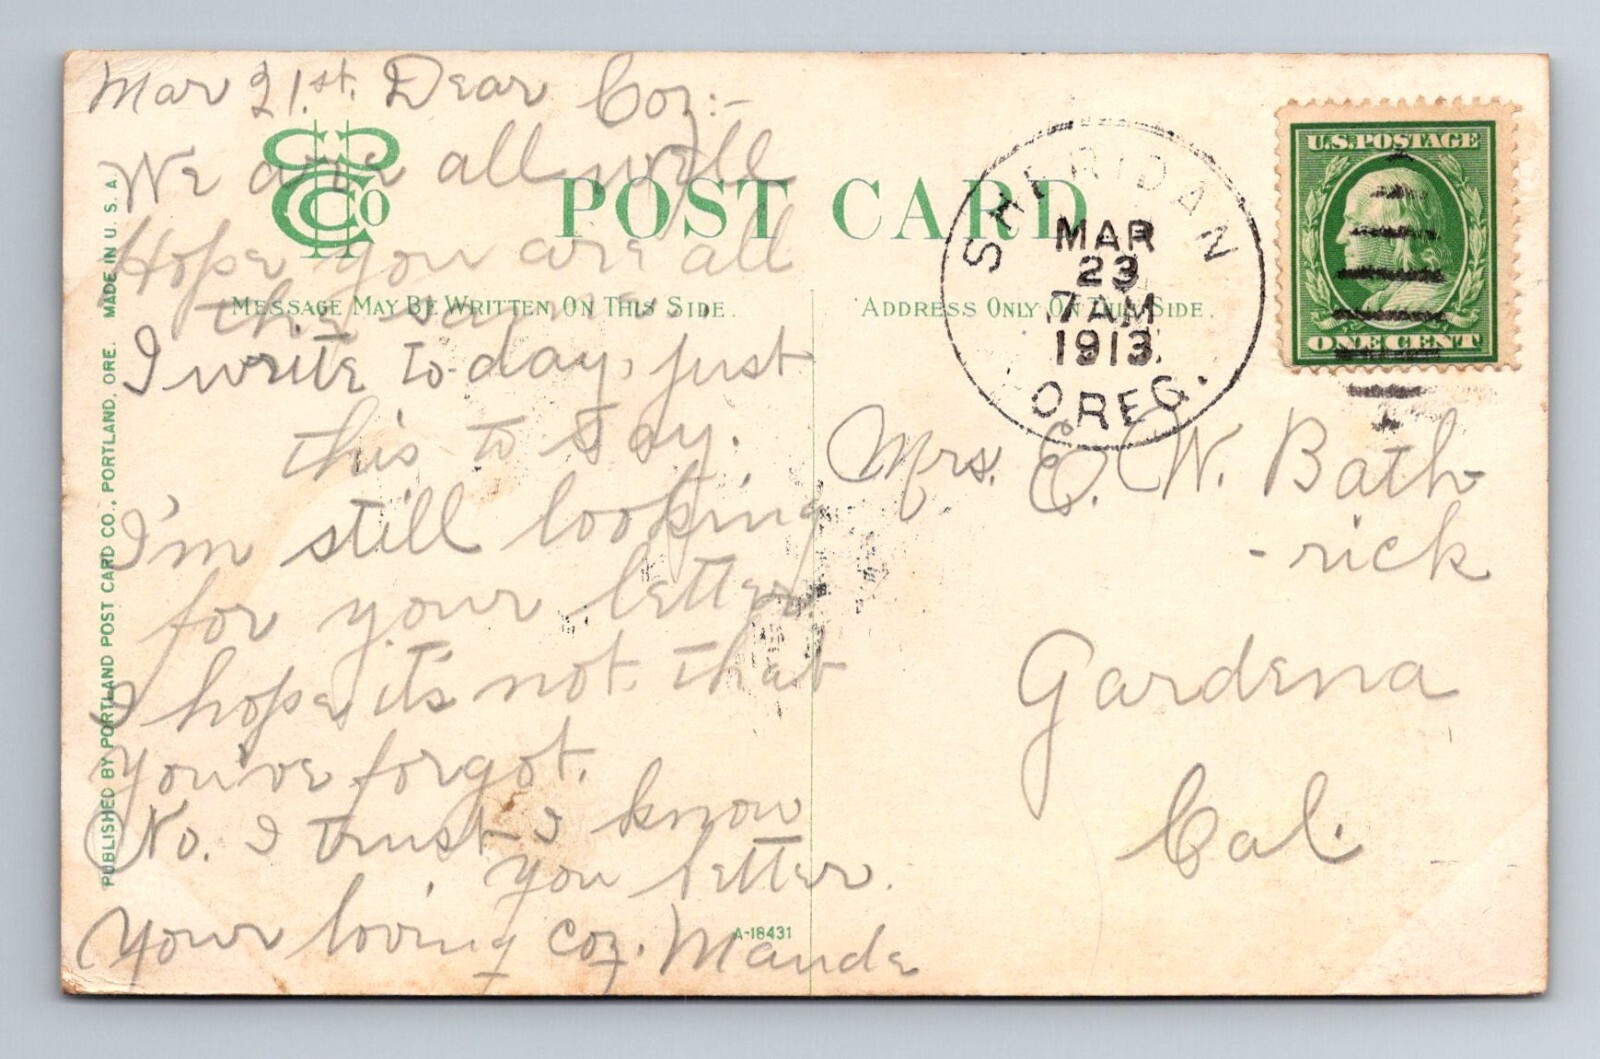 Mar 21.st. Dear Coz:-
We are all well
Hope you are all
the same
I write to-day, just
this to say.
I'm still looking
for your letter
I hope it's not that
you've forgot.
No. I trust I know
you better.
Your loving coz. Maude
CCCo
POST CARD
MESSAGE MAY BE WRITTEN ON THIS SIDE.
ADDRESS ONLY ON THIS SIDE.
PUBLISHED BY PORTLAND POST CARD CO., PORTLAND, ORE. MADE IN U. S. A.
A-18431
SHERIDAN
MAR
23
7 AM
1913.
OREG.
U.S. POSTAGE
1
ONE CENT
Mrs. E. W. Bath-
-rick
Gardena
Cal.